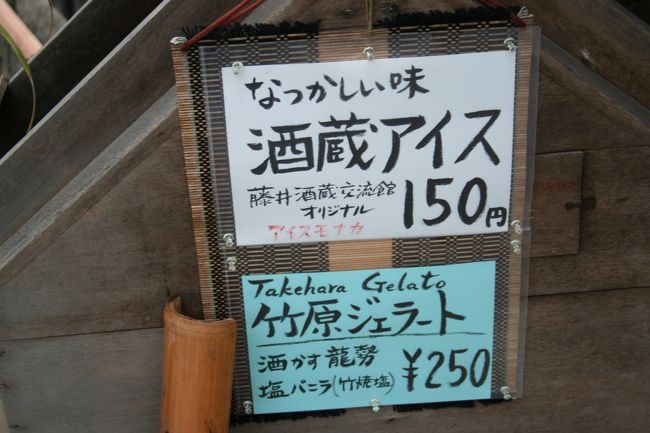 なつかしい味
酒蔵アイス
藤井酒蔵交流館
オリジナル
アイスモナカ
150円
Takehara Gelato
竹原ジェラート
酒かす龍勢
塩バニラ(竹焼塩)
¥250